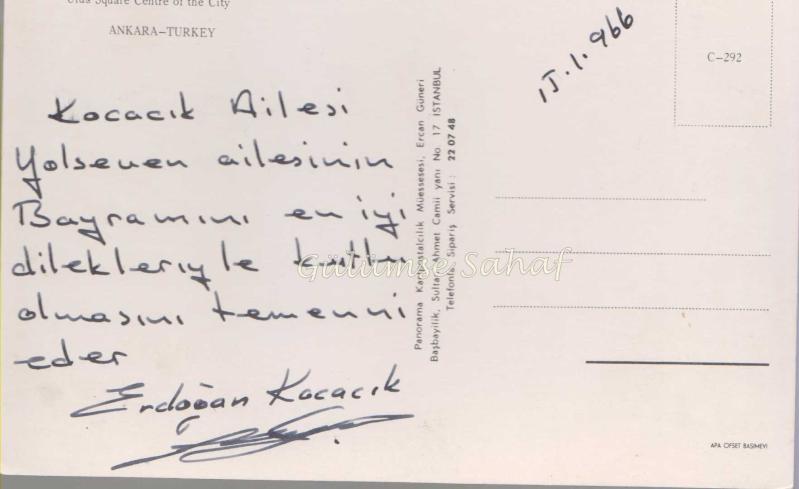 Ulus Square Centre of the City
ANKARA–TURKEY
15.1.966
C–292
Kocacık Ailesi
Yolseven ailesinin
Bayramını en iyi
dilekleriyle kutlu
olmasını temenni
eder
Erdoğan Kocacık
Panorama Kartpostalcılık Müessesesi, Ercan Güneri
Başbayilik, Sultan Ahmet Camii yanı No. 17 İSTANBUL
Telefonla Sipariş Servisi : 22 07 48
Gülümse Sahaf
APA OFSET BASIMEVİ